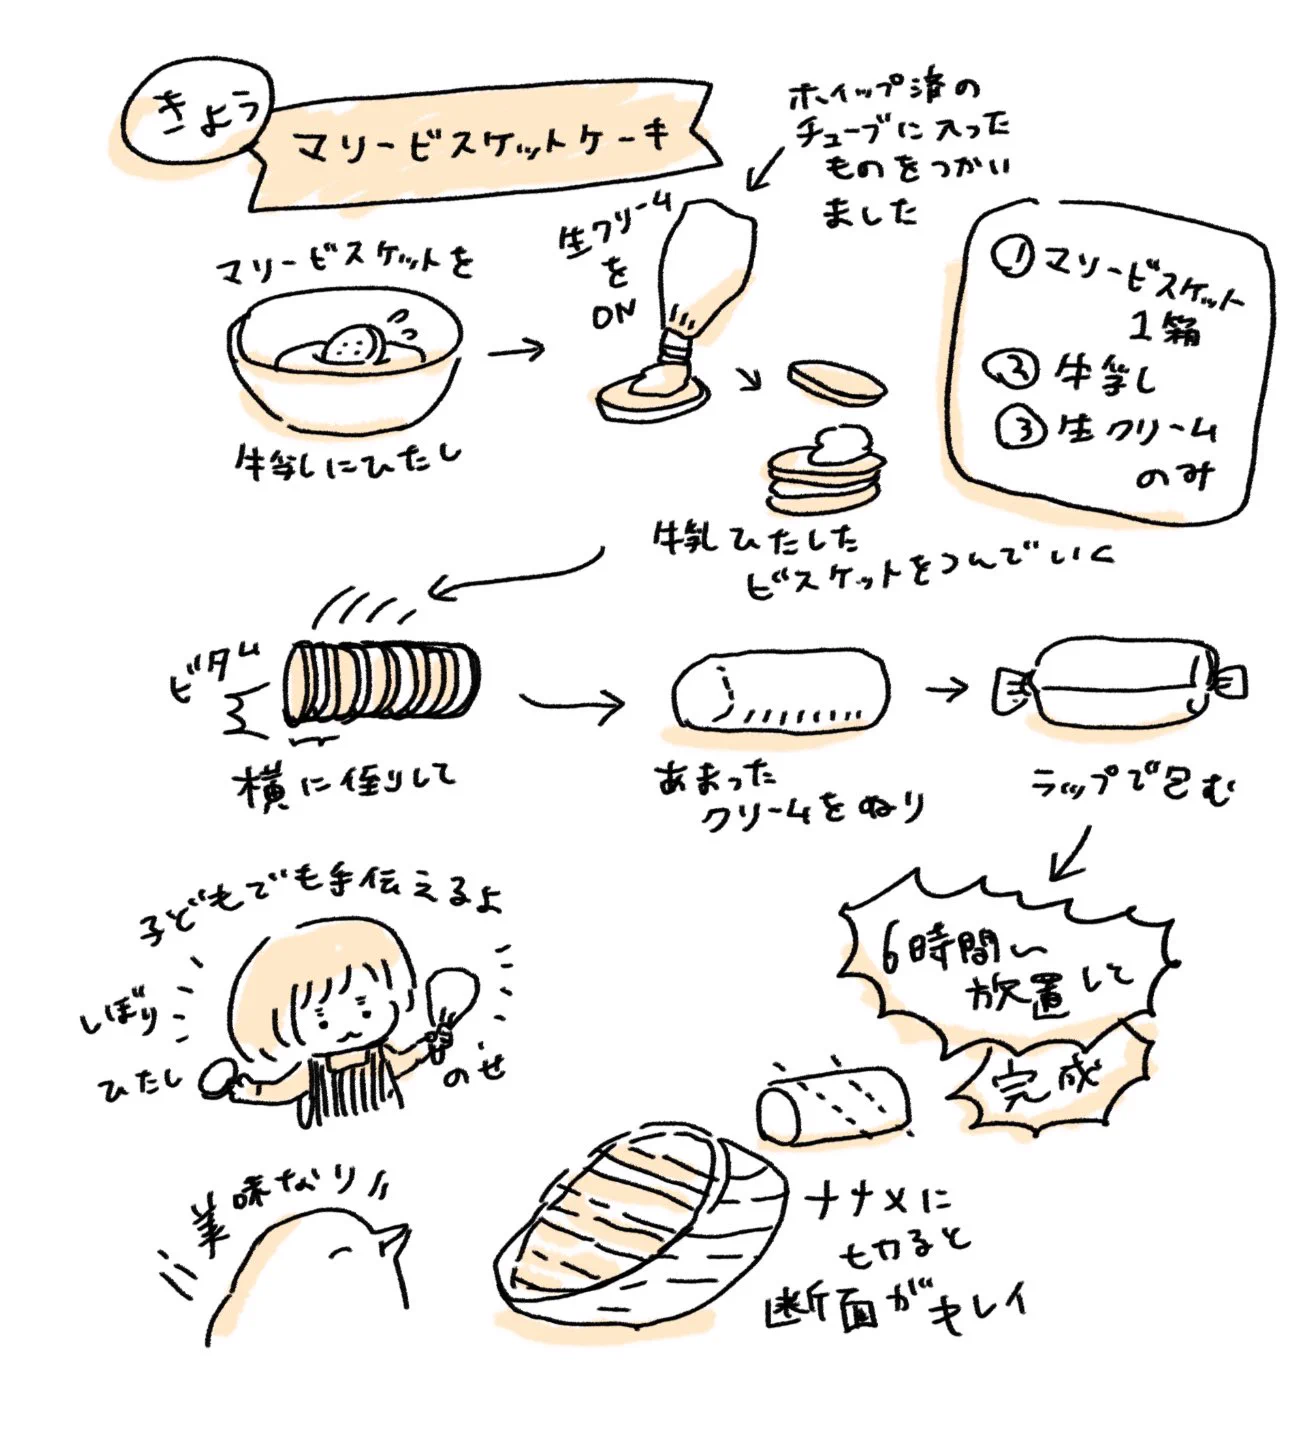 きょう
マリービスケットケーキ
ホイップ済の
チューブに入った
ものをつかい
ました
マリービスケットを
牛乳にひたし
生クリーム
を
ON
① マリービスケット
1箱
② 牛乳
③ 生クリーム
のみ
牛乳ひたした
ビスケットをつんでいく
ビタム
横に倒して
あまった
クリームをぬり
ラップで包む
6時間
放置して
完成
子どもでも手伝えるよ
しぼり
ひたし
のせ
ナナメに
切ると
断面がキレイ
美味なり